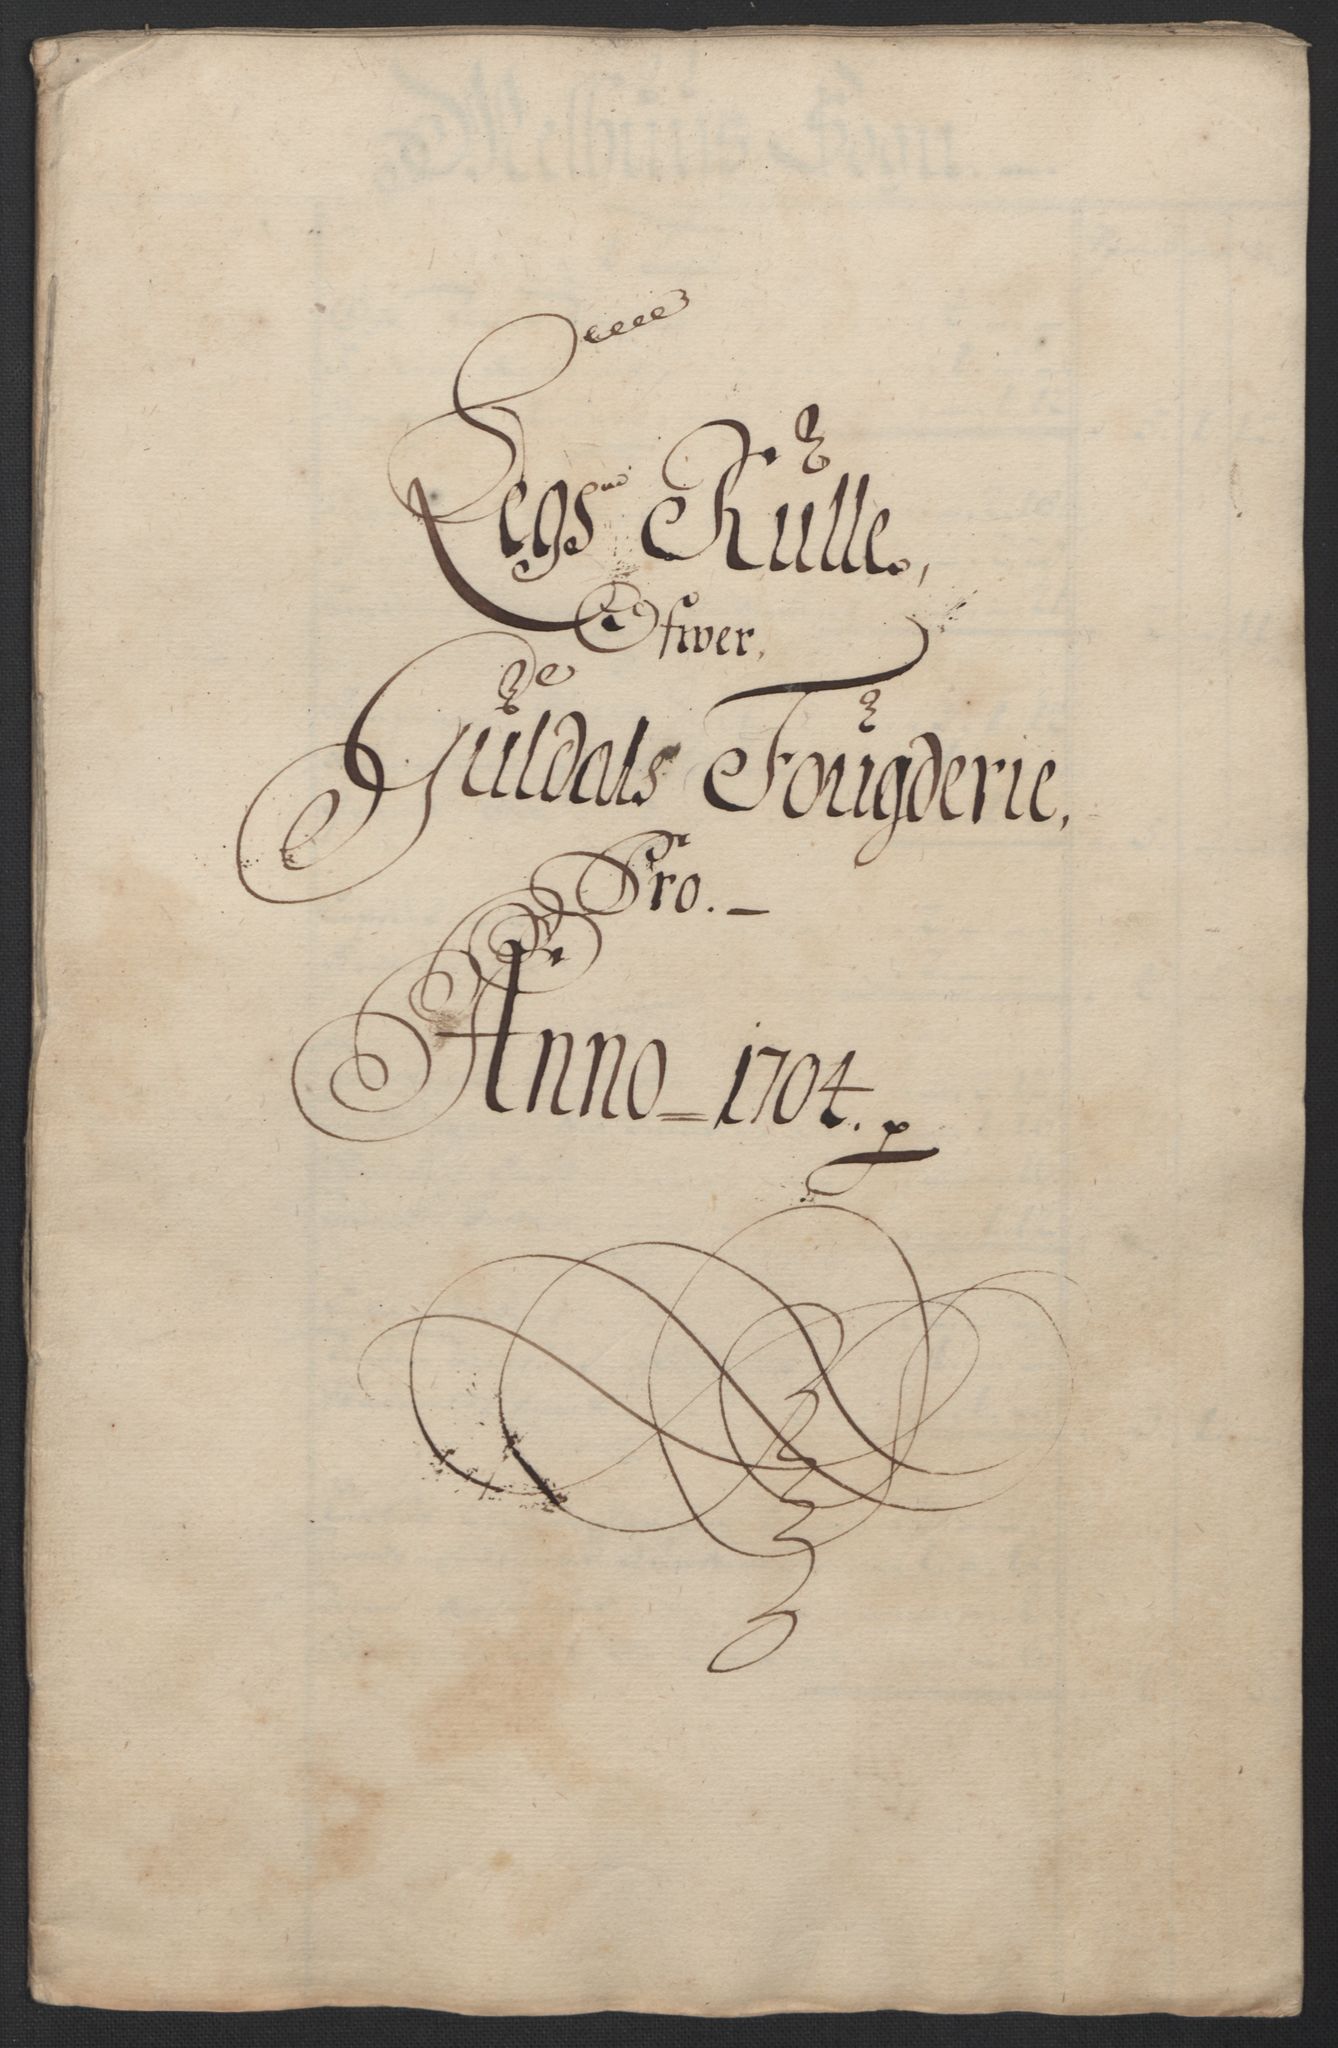 Legs Rulle,
Ofwer.
Guldals Fougderie,
Pro. -
Anno = 1704.